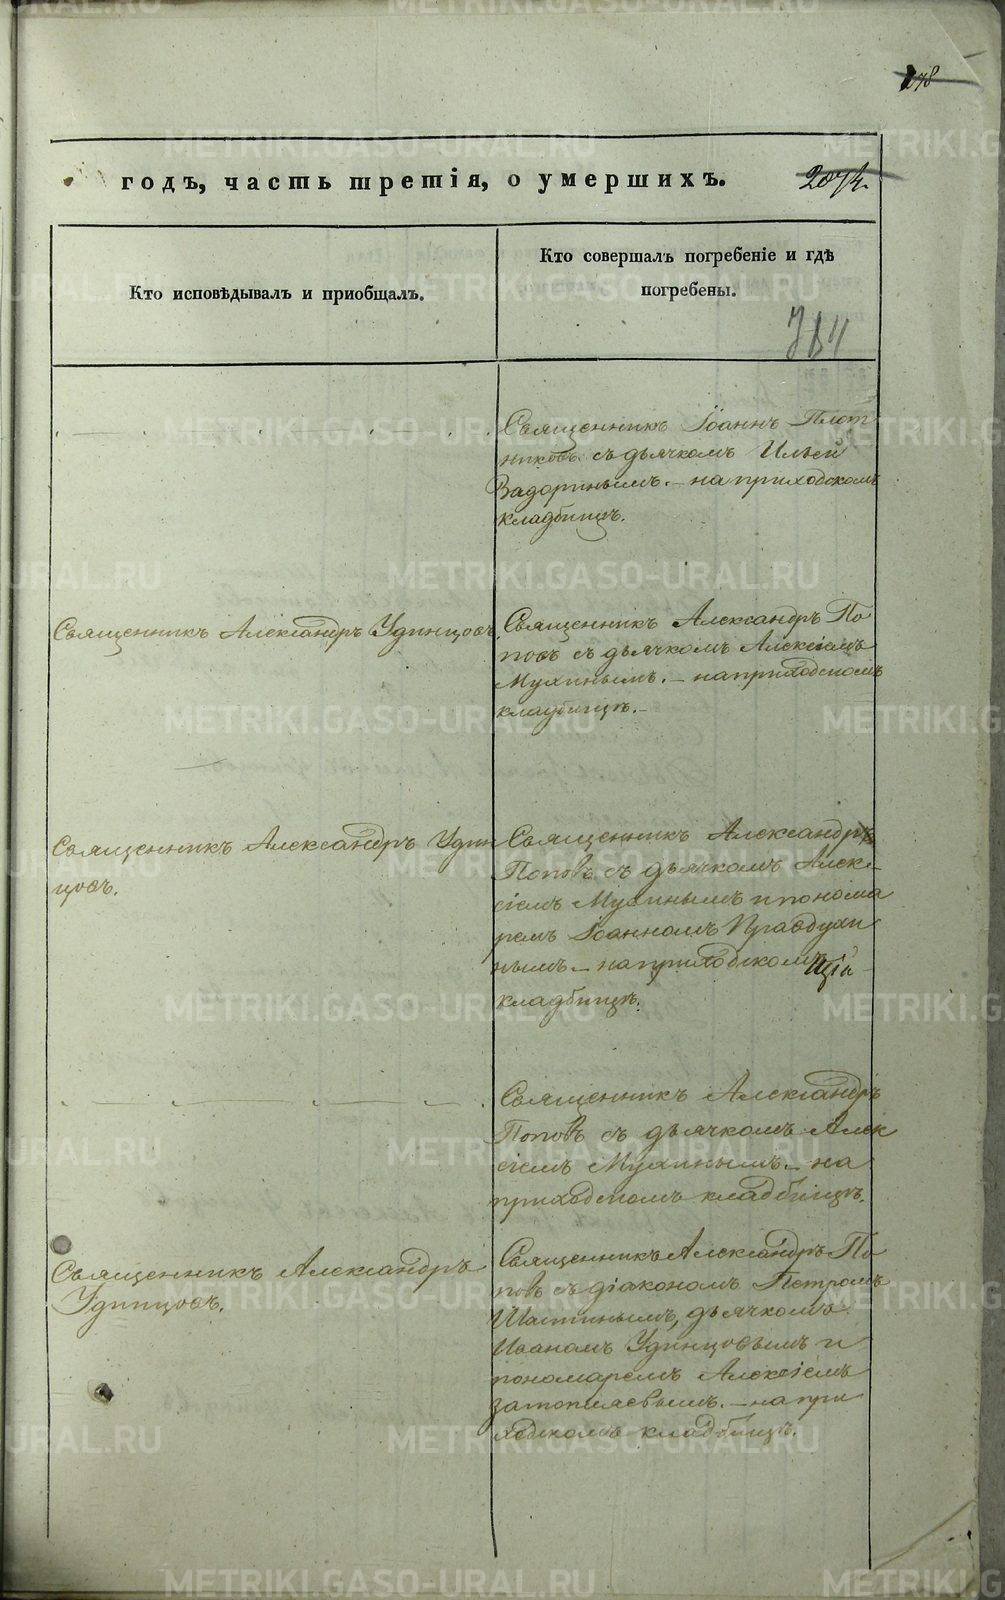 278
годъ, часть третія, о умершихъ.
2074.
Кто исповѣдывалъ и приобщалъ.
Кто совершалъ погребеніе и гдѣ
погребены.
Священникъ Іоаннъ Плот
никовъ съ дьячкомъ Ильей
Задоринымъ. – на приходскомъ
кладбищѣ.
Священникъ Александръ Удинцовъ
Священникъ Александръ По
повъ съ дьячкомъ Алексіемъ
Мухинымъ. – на приходскомъ
кладбищѣ. –
Священникъ Александръ Удин
цовъ.
Священникъ Александръ
Поповъ съ дьячкомъ Алек-
сіемъ Мухинымъ и понома
ремъ Іоанномъ Правдухи
нымъ – на приходскомъ
кладбищѣ.
Священникъ Александръ
Поповъ съ дьячкомъ Алек
сіемъ Мухинымъ. – на
приходскомъ кладбищѣ.
Священникъ Александръ
Удинцовъ.
Священникъ Александръ По
повъ съ діакономъ Петромъ
дьячкомъ
Иваномъ Удинцовымъ и
пономаремъ Алексіемъ
Затопляевымъ. – на при
ходскомъ кладбищѣ.
METRIKI.GASO-URAL.RU